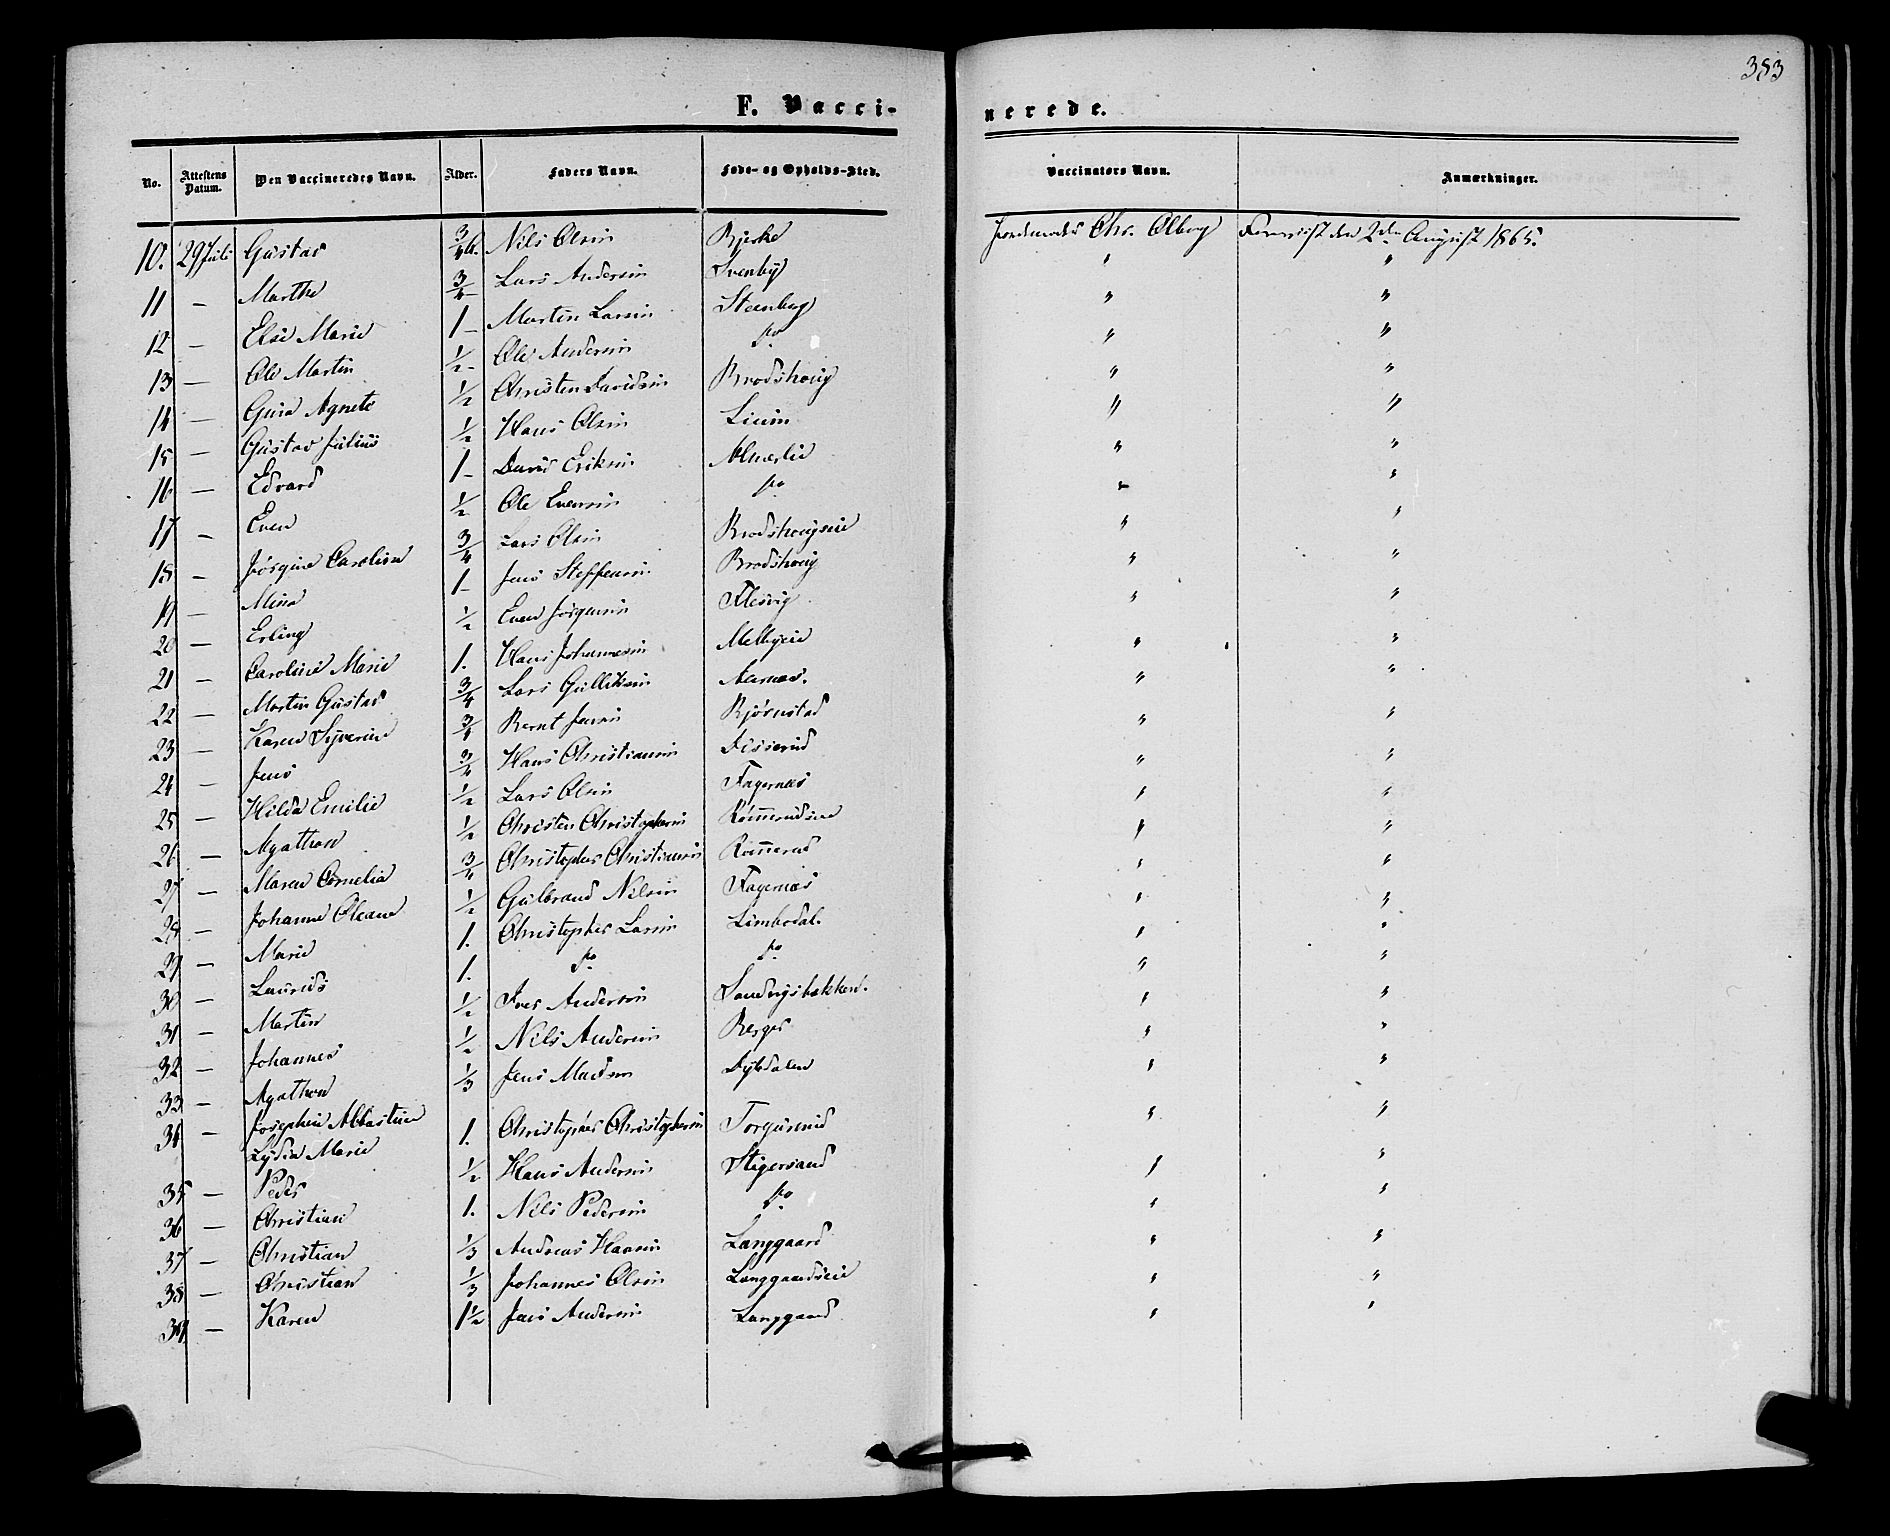 383
F. Vaccinerede.
No. Attestens Datum. Den Vaccineredes Navn. Alder. Faders Navn. Føde- og Opholds-Sted. Vaccinators Navn. Anmærkninger.
10. 29 Juli Gustav 3/4 Nils Olsen Bjerke Chr. Olberg den 2den August 1865.
11 — Marthe 3/4 — Lars Andersen Svenby " "
12 — Else Marie 1 — Martin Larsen Steenberg " "
13 — Ole Martin 1/2 — Ole Andersen do " "
14 — Agnete 1/2 Christen Davidsen Brodshoug " "
15 — Gustav Julius 1/2 Hans Olsen " "
16 — Edvard 1 — David Eriksen Almerlie " "
17 — Even 1/2 Ole Evensen do " "
18 — Jørgine Caroline 3/4 Lars Olsen Brodshougeie " "
19 — Mina 1 — Jens Steffensen Brodshoug " "
20 — Erling 1/2 Even Jørgensen Flesvig " "
21 — Caroline Marie 1. Hans Johannesen Melbyeie " "
22 — Martin Gustav 3/4 Lars Gulliksen Aarnæs. " "
23 — Karen Syverine 3/4 Bernt Jensen Bjørnstad " "
24 — Jens 3/4 Hans Christiansen " "
25 — Hilda Emilie 1/2 Lars Olsen Fagernæs " "
26 — Agathon 1/2 Christen Christophersen Rom̄erudeie " "
27 — Maren Cornelia 3/4 Christopher Christiansen Rom̄erud " "
28 — Johanne Oleane 1/2 Gulbrand Nilsen Fagernæs " "
29 — Marie 1. Christopher Larsen Limbodal. " "
30 — Laurids 1. do do " "
31 — Martin 1/2 Iver Andersen Sandvigsbakken. " "
32 — Johannes 1/2 Nils Andersen Berger " "
33 — Agathon 1/3 Jens Madsen Dybdalen " "
34 — Josephine Albertine
Lydia Marie 1. Christopher Christophersen Torgunrud " "
35 — Peder 1/2 Hans Andersen Stigersand " "
36 — Christian 1. Nils Pedersen do " "
37 — Christian 1/3 Andreas Hansen Langgaard " "
38 — Christian 1/3 Johannes Olsen Langgaardseie " "
39 — Karen 1 1/2 Jens Andersen Langgaard " "